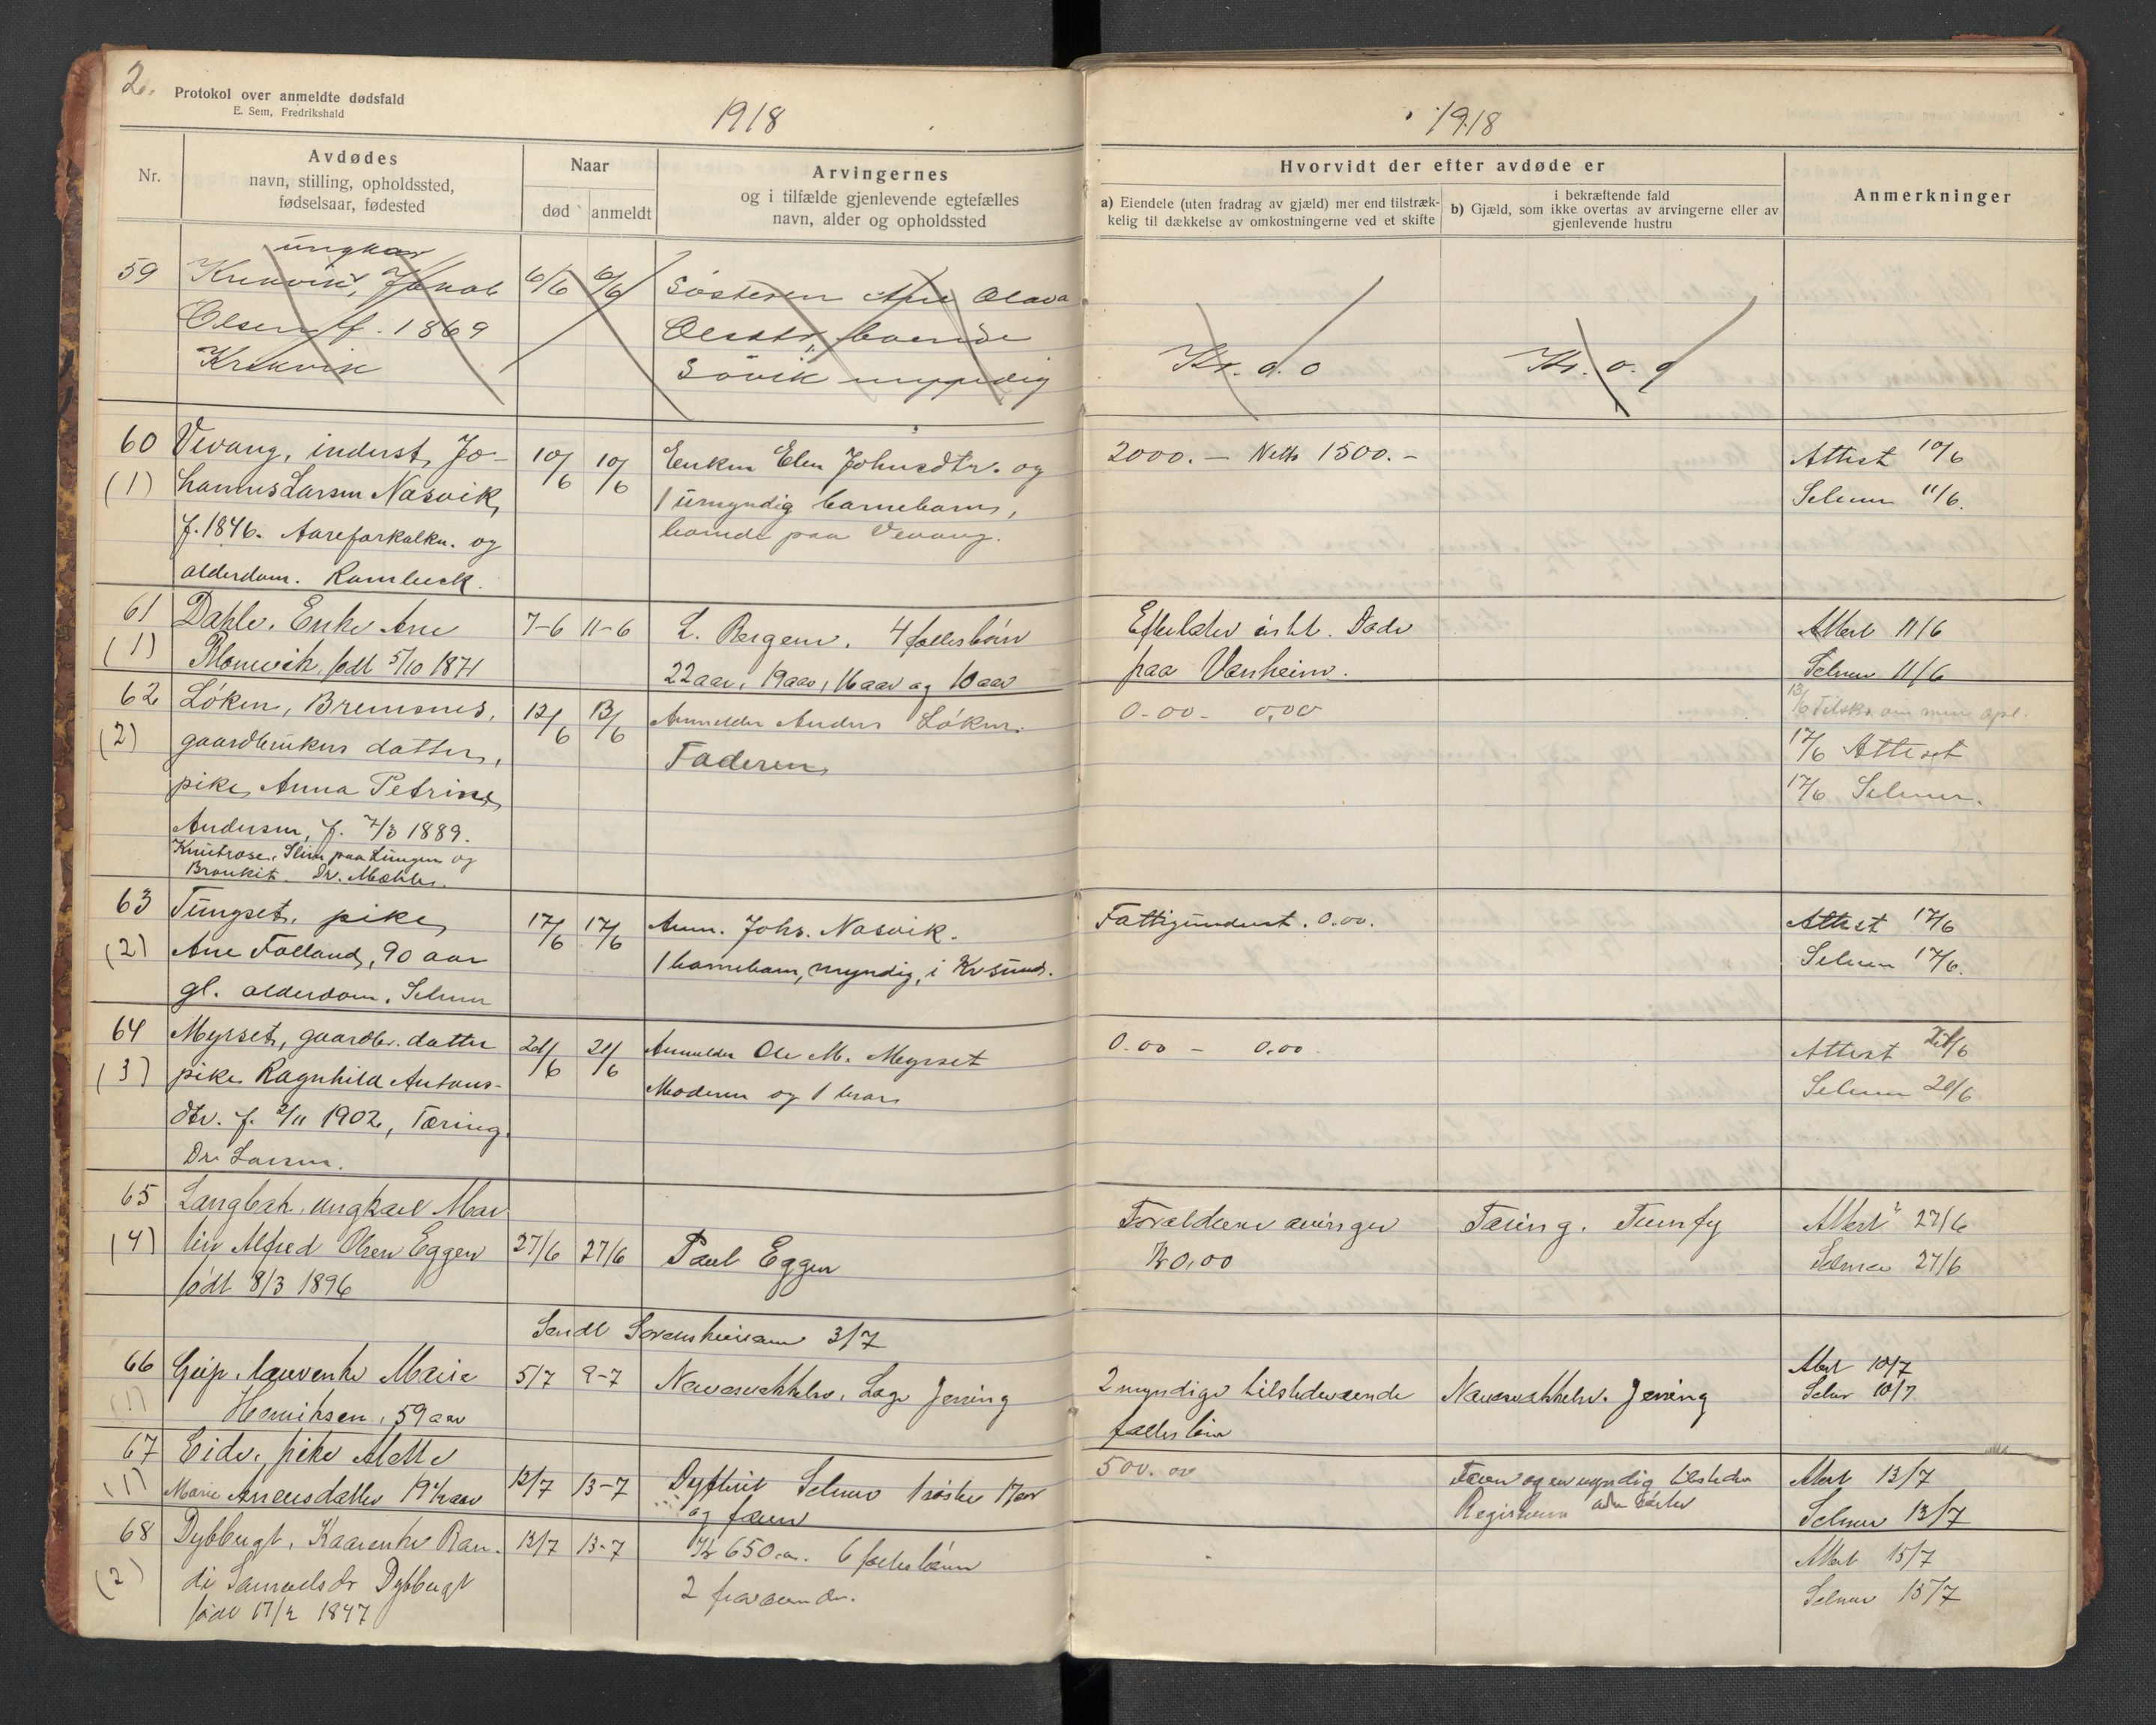 2.
Protokol over anmeldte dødsfald
E. Sem, Fredrikshald
1918
Nr.
Avdødes
navn, stilling, opholdssted,
fødselsaar, fødested
Naar
død
anmeldt
Arvingernes
og i tilfælde gjenlevende egtefælles
navn, alder og opholdssted
59
ungkar
Krekvik, Jakob
Olsen f. 1869
Krekvik
6/6
6/6
Søsteren Ane Olava
Olsdtr, boende
Søvik myndig
60
(1)
Vevang, inderst, Jo-
hannes Larsen Nasvik,
f. 1846. Aareforkalkn. og
alderdom.
10/6
10/6
Enken Elen Johnsdtr. og
1 umyndig barnebarn,
boende paa Vevang.
61
(1)
Dahle, Enke Ane
født 5/10 1871
7-6
11-6
L. Bergem. 4 fællesbörn
22 aar, 19 aar, 16 aar og 10 aar
62
(2)
Löken, Bremsnes,
gaardbrukers datter,
pike, Anna Petrine
Andersen, f. 7/3 1889.
Knutrose, Slim paa Lungen og
Bronkit. Dr. Mæhle.
12/6
13/6
Anmelder Anders Löken.
Faderen
63
(2)
Tungset, pike,
Ane Folland, 90 aar
gl. alderdom, Selmer
17/6
17/6
Anm. Johs. Nasvik.
1 barnebarn, myndig, i Krsund.
64
(3)
Myrset, gaardbr. datter
pike Ragnhild Antons-
dtr. f. 2/11 1902, Tæring.
Dr. Larsen.
21/6
21/6
Anmelder Ole M. Myrset
Moderen og 1 bror
65
(4)
Langbak, ungkarl Mar
tin Alfred Olsen Eggen
født 8/3 1896
27/6
27/6
Paul Eggen
Sendt Sorenskriveren 3/7
66
(1)
Geip, Marie
Henriksen, 59 aar
5/7
9-7
Lage Jenning
67
(1)
Eide, pike Alette
Marie 19 1/2 aar
12/7
13-7
Dyfterit Selmer 1 søster 17 aar
og faren
68
(2)
Dybbugt, Kaarenke Ran-
di Samuelsdr Dybbugt
1847
13/7
13-7
Kr 650.00. 6 fællesbørn
2
1918
Hvorvidt der efter avdøde er
a) Eiendele (uten fradrag av gjæld) mer end tilstræk-
kelig til dækkelse av omkostningerne ved et skifte
i bekræftende fald
b) Gjæld, som ikke overtas av arvingerne eller av
gjenlevende hustru
Anmerkninger
Kr. 0. 0
Kr. 0. 0
2000.- Netto 1500.-
Attest 10/6
Selmer 11/6.
Døde
paa Vanheim.
Attest 11/6
Selmer 11/6
0-00 - 0,00
13/6
17/6 Attest
17/6 Selmer.
Fattigunderst. 0.00.
Attest 17/6
Selmer 17/6.
0.00 - 0,00
Attest 21/6
Selmer 21/6
Forældrene arvinger
Kr 0,00
Tæring.
Attest 27/6
Selmer 27/6
2 myndige tilstedeværende
fællesbörn
Jenning
Attest 10/7
Selmer 10/7
500.00
Faren og en myndig
Attest 13/7
Selmer 13/7
Attest 15/7
Selmer 15/7